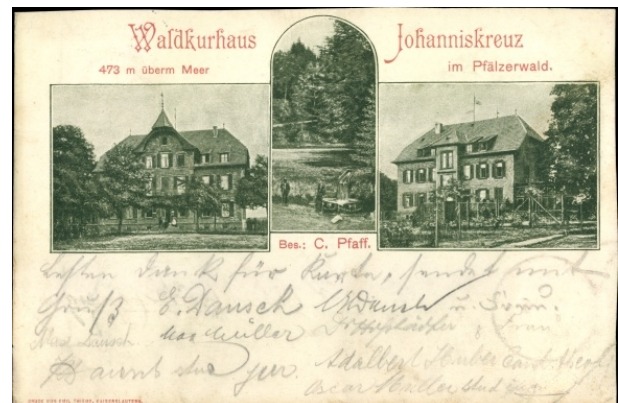 Waldkurhaus Johanniskreuz
473 m überm Meer im Pfälzerwald.
Bes.: C. Pfaff.
besten Dank für Karte, sendet mit
Gruß E. Dausch u. Frau.
Max Dausch Max Müller Frau
stud jur. Adalbert Huber Cand.
Oscar Müller stud
DRUCK VON EMIL THIEME, KAISERSLAUTERN.